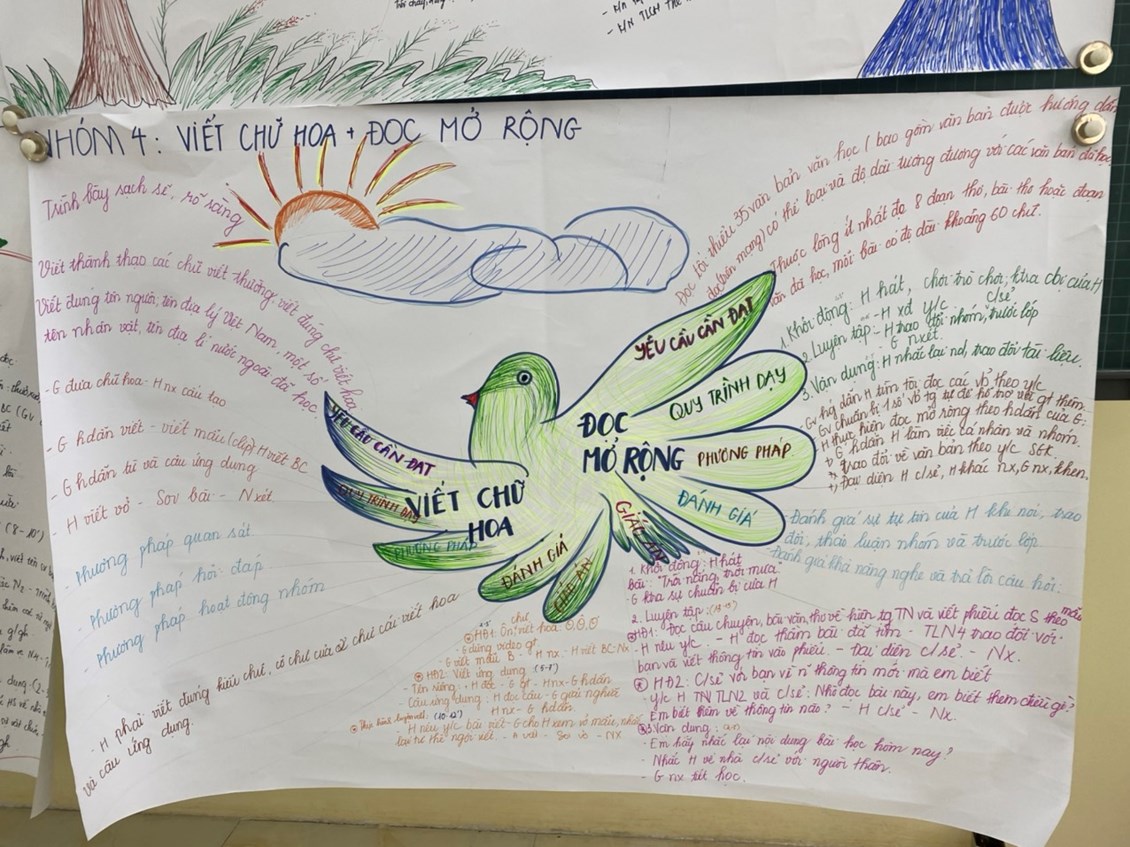 NHÓM 4: VIẾT CHỮ HOA + ĐỌC MỞ RỘNG
Trình bày sạch sẽ, rõ ràng
Viết thành thạo các chữ viết thường, viết đúng chữ viết hoa
Viết đúng tên người, tên địa lý Việt Nam, một số
tên nhân vật, tên địa lí nước ngoài đã học
- G đưa chữ hoa - H nx cấu tạo
- G hdẫn viết - viết mẫu (clip) H viết BC
- G hdẫn từ và câu ứng dụng
H viết vở - Soi bài - Nxét
- Phương pháp quan sát
- Phương pháp hỏi đáp
- Phương pháp hoạt động nhóm
- H phải viết đúng kiểu chữ, cỡ chữ của chữ cái viết hoa
và câu ứng dụng.
VIẾT CHỮ
HOA
YÊU CẦU CẦN ĐẠT
QUY TRÌNH DẠY
PHƯƠNG PHÁP
ĐÁNH GIÁ
GIÁO ÁN
HĐ1: Ôn viết chữ hoa:
G dùng video gt
- G viết mẫu B - H nx - H viết BC - Nx
HĐ2: Viết ứng dụng (5-7')
- Tên riêng: H đọc - G gt - H nx - G hdẫn
- Câu ứng dụng: H đọc câu - G giải nghĩa
H nx - G hdẫn
- H nêu y/c bài viết - G cho H xem vở mẫu, nhắc
lại tư thế ngồi viết. - H viết - Soi vở - NX
ĐỌC
MỞ RỘNG
YÊU CẦU CẦN ĐẠT
QUY TRÌNH DẠY
PHƯƠNG PHÁP
ĐÁNH GIÁ
GIÁO ÁN
Đọc tối thiểu 35 văn bản văn học (bao gồm văn bản được hướng dẫn
đọc trên mạng) có thể loại và độ dài tương đương với các văn bản đã học
Thuộc lòng ít nhất 8 đoạn thơ, bài thơ hoặc đoạn
văn đã học, mỗi bài có độ dài khoảng 60 chữ.
1. Khởi động: H hát, chơi trò chơi, ktra cbị của H
2. Luyện tập: - H xđ y/c c/sẻ
- H trao đổi nhóm, trước lớp
- G nxét
3. Vận dụng: H nhắc lại nd, trao đổi tài liệu
- G hg dẫn H tìm tòi đọc các vb theo y/c
Gv chuẩn bị 1 số vb tg tự để hỗ trợ việc gt thêm
H thực hiện đọc mở rộng theo hdẫn của G:
+ G hdẫn H làm việc cá nhân và nhóm.
+, Trao đổi về văn bản theo y/c SGK.
+, Đại diện H c/sẻ, H khác nx, G nx, khen.
- Đánh giá sự tự tin của H khi nói, trao
đổi, thảo luận nhóm và trước lớp
- Đánh giá khả năng nghe và trả lời câu hỏi.
1. Khởi động: H hát
bài: "Trời nắng trời mưa"
- G ktra sự chuẩn bị của H
2. Luyện tập:
HĐ1: Đọc câu chuyện, bài văn, thơ về hiện tg TN và viết phiếu đọc S theo mẫu
- H nêu y/c. - H đọc thầm bài đã tìm - TLN4 trao đổi với
bạn và viết thông tin vào phiếu - Đại diện c/sẻ - Nx.
HĐ2: C/sẻ với bạn về n~ thông tin mới mà em biết
Y/c H TN TLN2 và c/sẻ: Nhờ đọc bài này, em biết thêm điều gì?
Em biết thêm về thông tin nào? - H c/sẻ - Nx.
3. Vận dụng:
- Em hãy nhắc lại nội dung bài học hôm nay?
- Nhắc H về nhà c/sẻ với người thân.
- G nx tiết học.